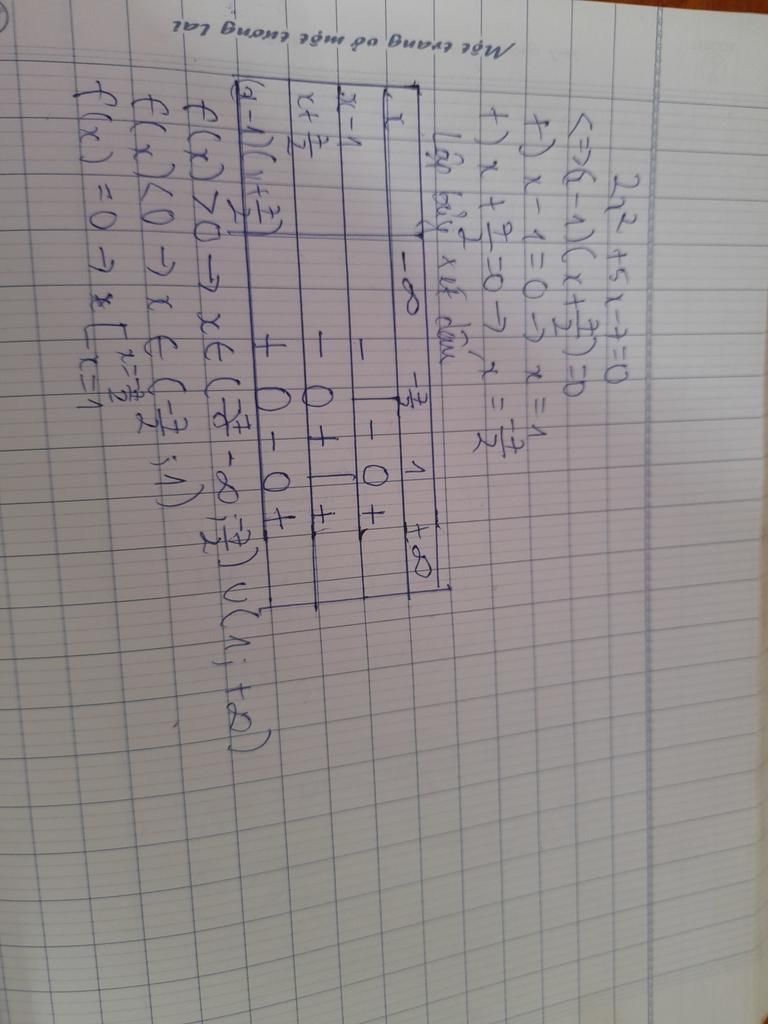 Một trang vở một tương lai
2x² + 5x - 7 = 0
<=> (x - 1)(x + 7/2) = 0
+) x - 1 = 0 → x = 1
+) x + 7/2 = 0 → x = -7/2
lập bảng xét dấu
x -∞ -7/2 1 +∞
x - 1 - | - 0 +
x + 7/2 - 0 + | +
(x - 1)(x + 7/2) + 0 - 0 +
f(x) > 0 → x ∈ (-∞; -7/2) ∪ (1; +∞)
f(x) < 0 → x ∈ (-7/2; 1)
f(x) = 0 → x [ x = -7/2
x = 1